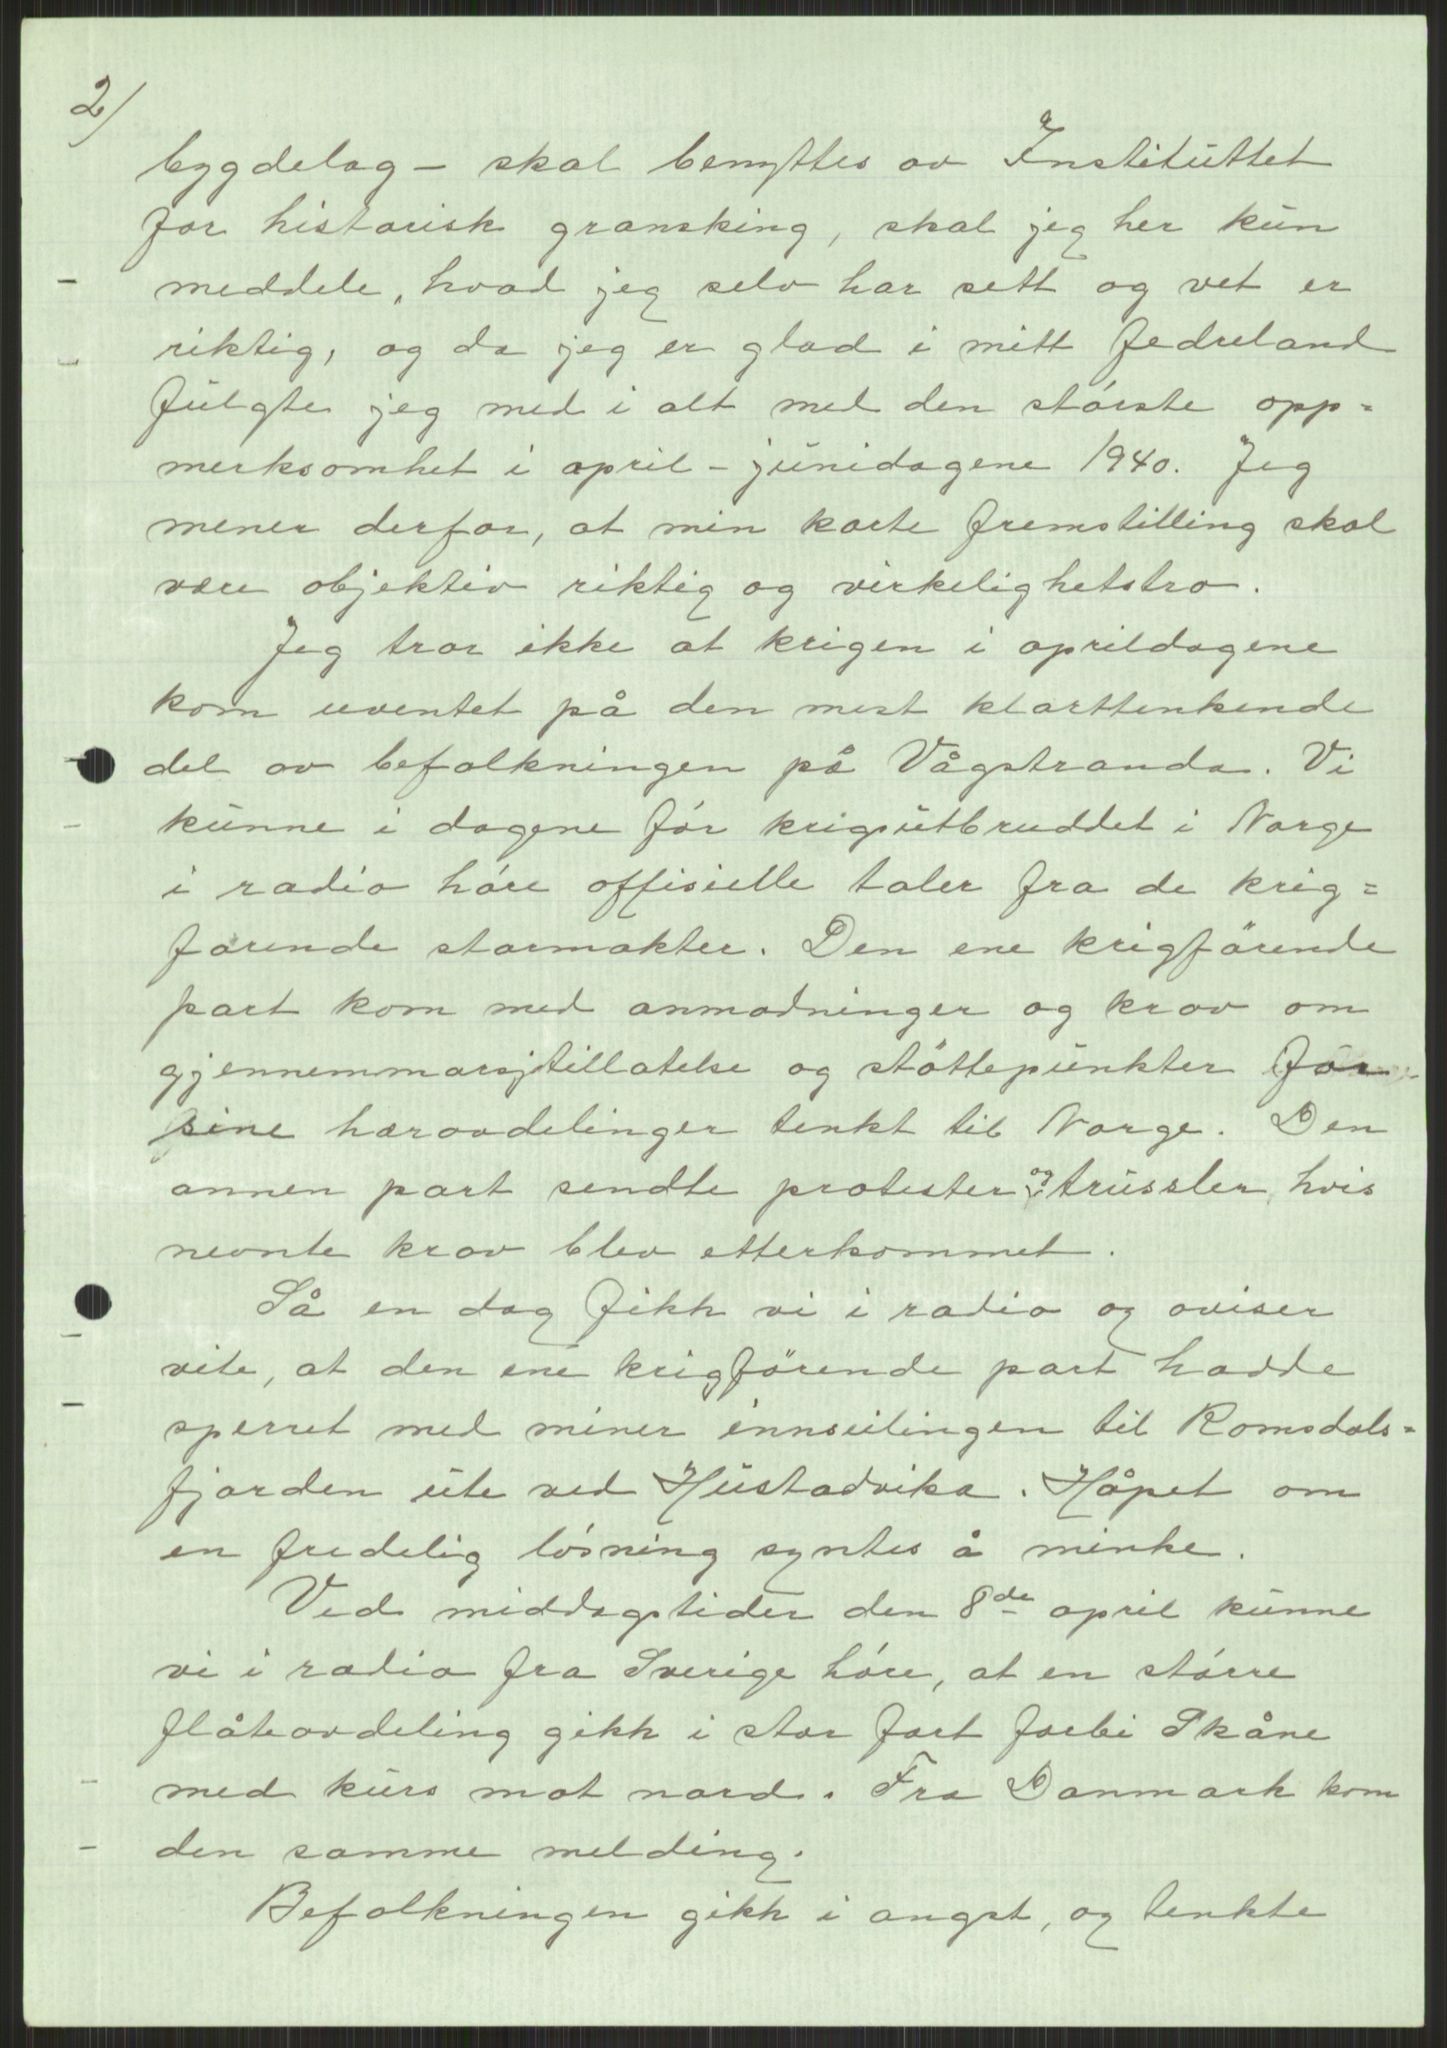 2/
bygdelag - skal benyttes av Instituttet
for historisk gransking, skal jeg her kun
meddele, hvad jeg selv har sett og vet er
riktig, og da jeg er glad i mitt fedreland
fulgte jeg med i alt med den største opp=
merksomhet i april - junidagene 1940. Jeg
mener derfor, at min korte fremstilling skal
være objektiv riktig og virkelighetstro.
Jeg tror ikke at krigen i aprildagene
kom uventet på den mest klarttenkende
del av befolkningen på Vågstranda. Vi
kunne i dagene før krigsutbruddet i Norge
i radio høre offisielle taler fra de krig=
førende stormakter. Den ene krigførende
part kom med anmodninger og krav om
gjennemmarsjtillatelse og støttepunkter for
sine hæravdelinger tenkt til Norge. Den
annen part sendte protester og trussler, hvis
nevnte krav blev etterkommet.
Så en dag fikk vi i radio og aviser
vite, at den ene krigførende part hadde
sperret med miner innseilingen til Romsdals=
fjorden ute ved Hustadvika. Håpet om
en fredelig løsning syntes å minke.
Ved middagstider den 8de april kunne
vi i radio fra Sverige høre, at en større
flåteavdeling gikk i stor fart forbi Skåne
med kurs mot nord. Fra Danmark kom
den samme melding.
Befolkningen gikk i angst, og tenkte